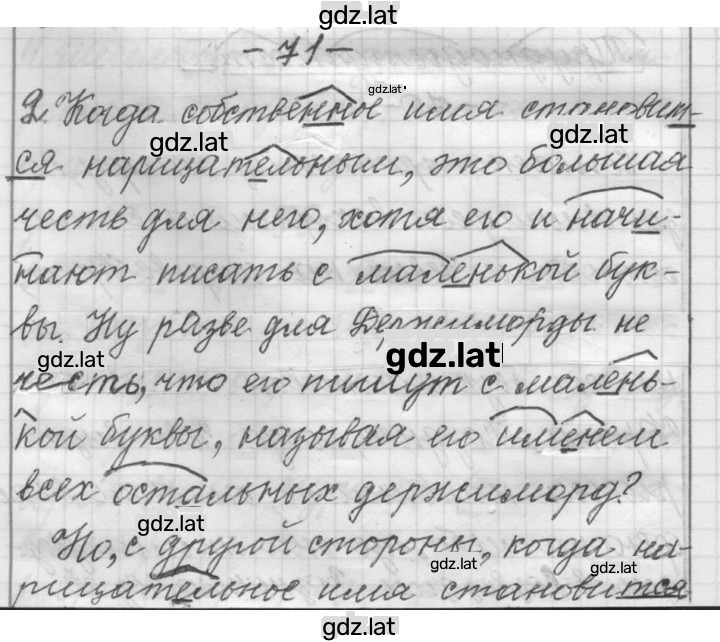 gdz.lat
- 71 -
2. Когда собственное имя становит-
ся нарицательным, это большая
честь для него, хотя его и начи-
нают писать с маленькой бук-
вы. Ну разве для Держиморды не
честь, что его пишут с малень-
кой буквы, называя его именем
всех остальных держиморд?
Но, с другой стороны, когда на-
рицательное имя становится
gdz.lat
gdz.lat
gdz.lat
gdz.lat
gdz.lat
gdz.lat
gdz.lat
gdz.lat
gdz.lat
gdz.lat